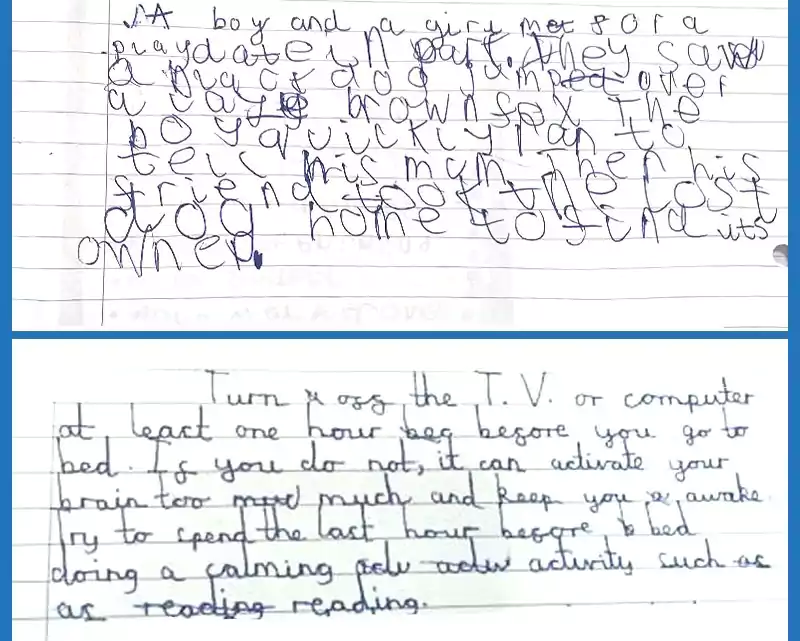 A boy and a girl met for a
playdate in park. they saw
a black dog jumped over
a brown fox The
boy quickly ran to
tell his mum. Then his
friend took the lost
dog home to find its
owner.
Turn off the T.V. or computer
at least one hour bef before you go to
bed. If you do not, it can activate your
brain too much and keep you awake.
Try to spend the last hour before b bed
doing a calming activity such as
as reading reading.